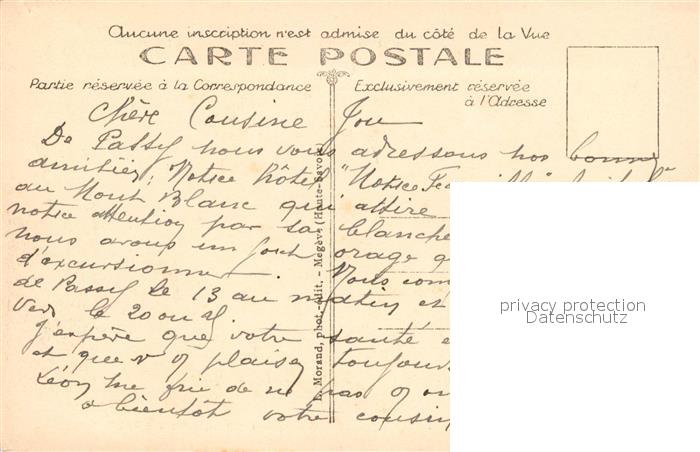 Aucune inscription n'est admise du côté de la Vue
CARTE POSTALE
Partie réservée à la Correspondance
Exclusivement réservée
à l'Adresse
Chère Cousine Jou
De Passy nous vous adressons nos bonnes
amitiés. Notre hôtel "Notre
au Mont Blanc qui attire
notre attention par sa blanche
nous avons un fort orage
d'excursionner. Nous
de Passy le 13 au matin et
vers le 20 ou 25.
J'espère que votre santé
et que v v plaisez toujours
Léon me prie de ne pas
a bientôt votre cousin
E. Morand, phot.-édit. - Megève (Haute-Savoie)
privacy protection
Datenschutz